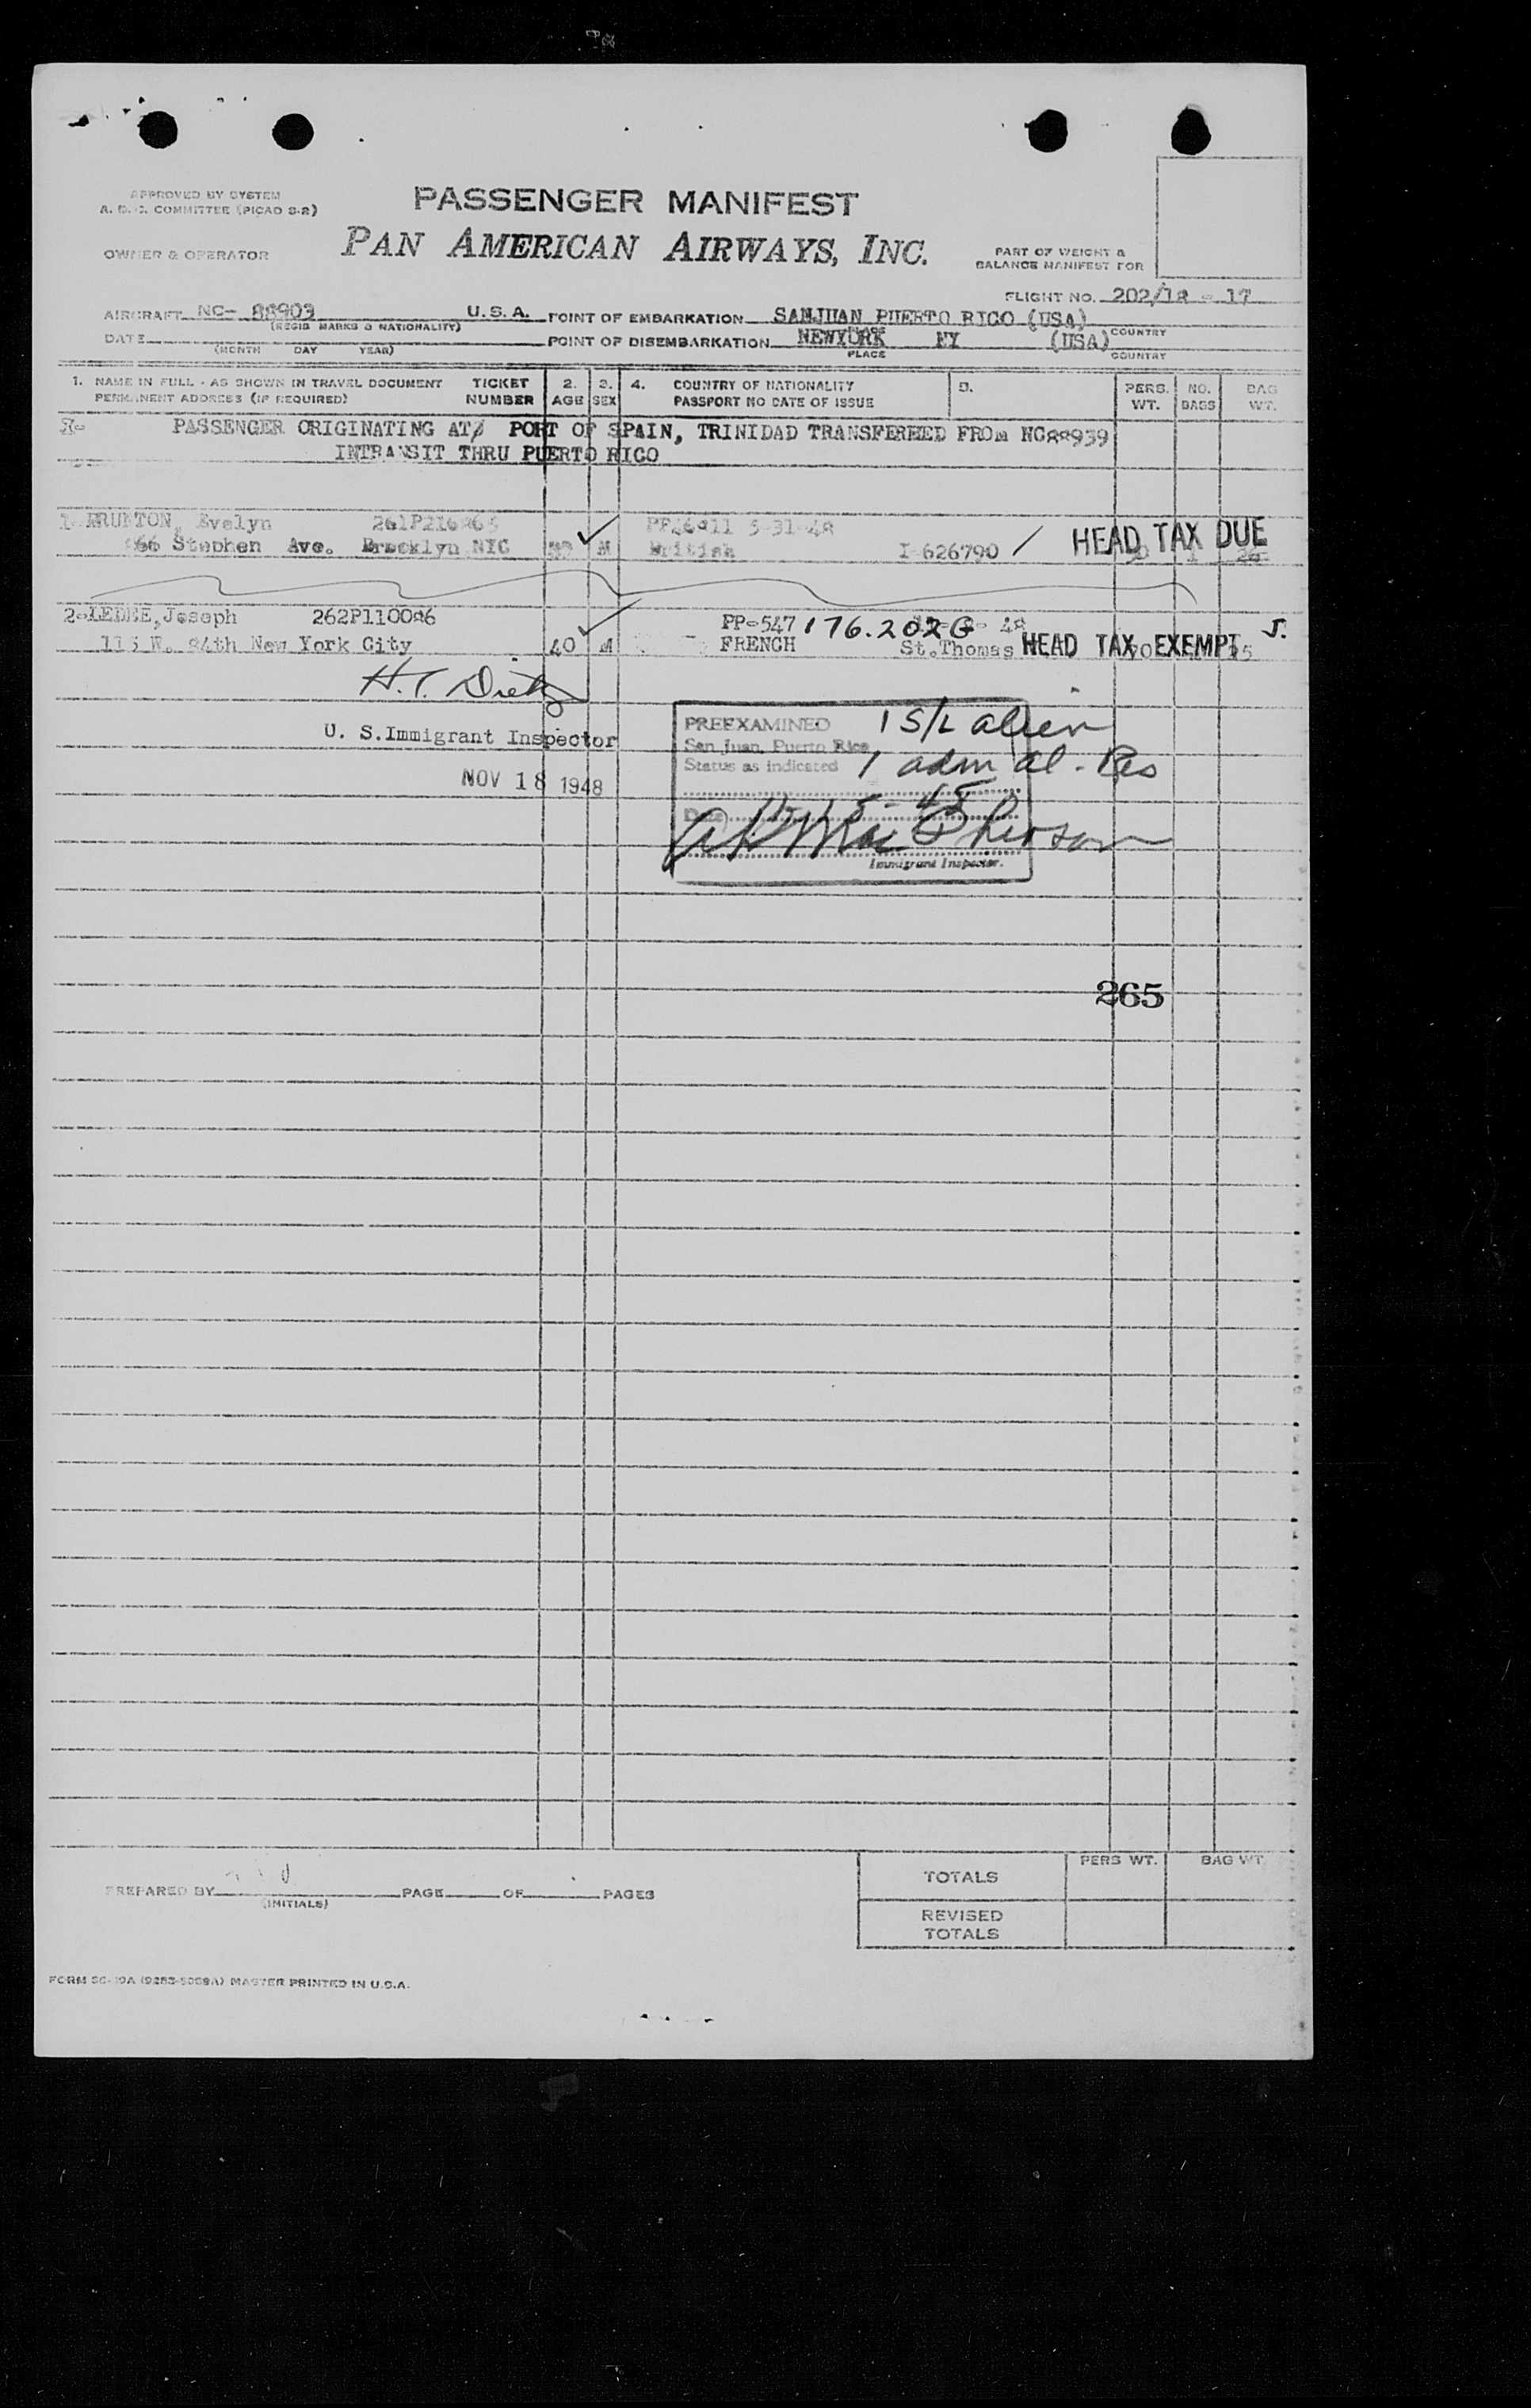 APPROVED BY SYSTEM
A. D. C. COMMITTEE (PICAO S-2)
PASSENGER MANIFEST
OWNER & OPERATOR
PAN AMERICAN AIRWAYS, INC.
PART OF WEIGHT &
BALANCE MANIFEST FOR
FLIGHT NO. 202/18 - 17
AIRCRAFT NC- 88909 U.S.A. POINT OF EMBARKATION SANJUAN PUERTO RICO (USA)
(REGIS MARKS & NATIONALITY) PLACE COUNTRY
DATE POINT OF DISEMBARKATION NEWYORK NY (USA)
(MONTH DAY YEAR) PLACE COUNTRY
1. NAME IN FULL - AS SHOWN IN TRAVEL DOCUMENT TICKET 2. 3. 4. COUNTRY OF NATIONALITY 5. PERS. NO. BAG
PERMANENT ADDRESS (IF REQUIRED) NUMBER AGE SEX PASSPORT NO DATE OF ISSUE WT. BAGS WT.
PASSENGER ORIGINATING AT/ PORT OF SPAIN, TRINIDAD TRANSFERRED FROm NC88939
INTRANSIT THRU PUERTO RICO
1- Evelyn 5-31-48
Stephen Ave. Brooklyn NYC M British I-626790 / HEAD TAX DUE
2-LEDEE, Joseph 262P110086 PP-547 176.202G 48 J.
W. 84th New York City 40 M FRENCH St.Thomas HEAD TAX EXEMPT
H.T. Dietz
U. S.Immigrant Inspector
NOV 18 1948
PREEXAMINED 1 S/L alien
San Juan, Puerto Rico
Status as indicated 1 adm al. Res
Date
Immigrant Inspector.
265
PERS WT. BAG WT.
TOTALS
PREPARED BY PAGE OF PAGES
(INITIALS)
REVISED
TOTALS
MASTER PRINTED IN U.S.A.